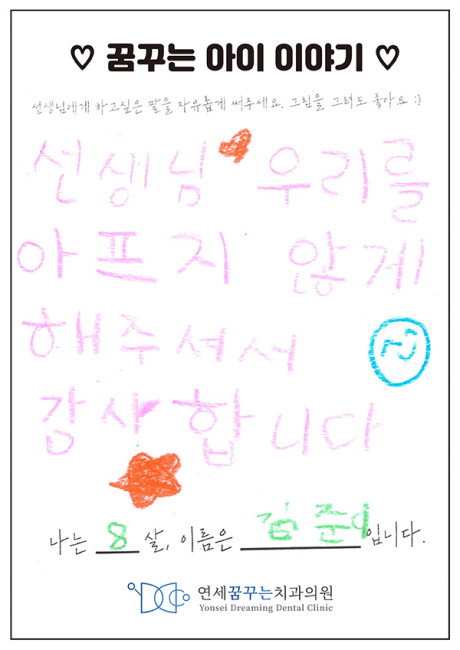 ♡ 꿈꾸는 아이 이야기 ♡
선생님에게 하고싶은 말을 자유롭게 써주세요. 그림을 그려도 좋아요 :)
선생님 우리를
아프지 않게
해주셔서
감사합니다
나는 8 살, 이름은 김준이 입니다.
연세꿈꾸는치과의원
Yonsei Dreaming Dental Clinic